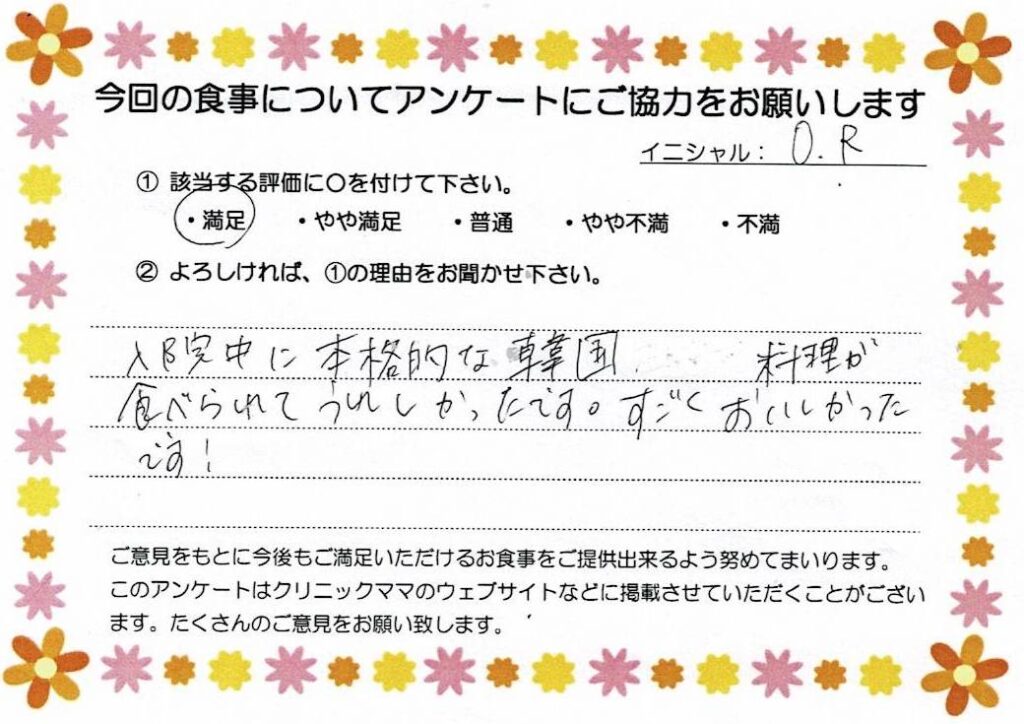 今回の食事についてアンケートにご協力をお願いします
イニシャル： O.R
① 該当する評価に○を付けて下さい。
・満足 ・やや満足 ・普通 ・やや不満 ・不満
② よろしければ、①の理由をお聞かせ下さい。
入院中に本格的な韓国 料理が
食べられてうれしかったです。すごくおいしかった
です!
ご意見をもとに今後もご満足いただけるお食事をご提供出来るよう努めてまいります。
このアンケートはクリニックママのウェブサイトなどに掲載させていただくことがござい
ます。たくさんのご意見をお願い致します。